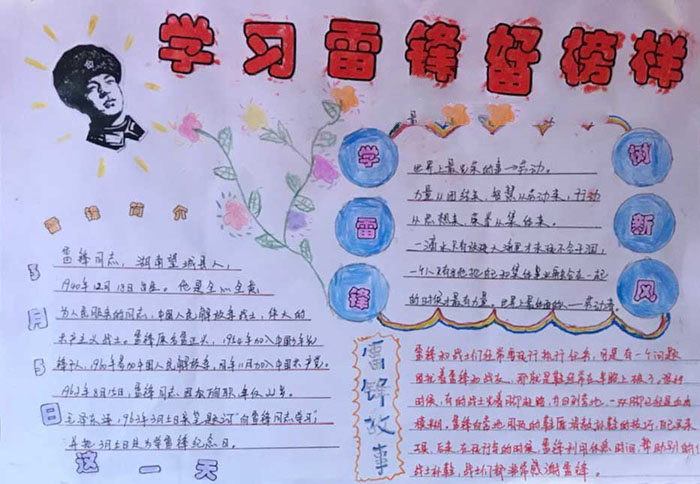 学习雷锋好榜样
雷锋简介
3月5日
这一天
雷锋同志,湖南望城县人,
1940年12月18日出生。他是全心全意
为人民服务的同志,中国人民解放军战士,伟大的
共产主义战士。雷锋原名雷正兴,1960年加入中国少年先
锋队,1960年参加中国人民解放军,同年11月加入中国共产党。
1962年8月15日,雷锋同志因公殉职,年仅22岁。
毛泽东于1963年3月5日亲笔题词“向雷锋同志学习”,
并把3月5日定为学雷锋纪念日。
学雷锋
树新风
世界上最光荣的事——劳动。
力量从团结来,智慧从劳动来,行动
从思想来,荣誉从集体来。
一滴水只有放进大海里才永远不会干涸,
一个人只有当他把自己和集体事业融合在一起
的时候才最有力量。世界上最
劳动者。
雷锋故事
雷锋和战士们经常要夜行执行任务,可是有一个问题
困扰着雷锋和战友,那就是鞋经常在半路上
时候,有的战士光着脚赶路,
模糊。雷锋
现。后来,在夜行军的时候,雷锋利用休息时间,帮助别的
战士补鞋,战士们都非常感谢雷锋。